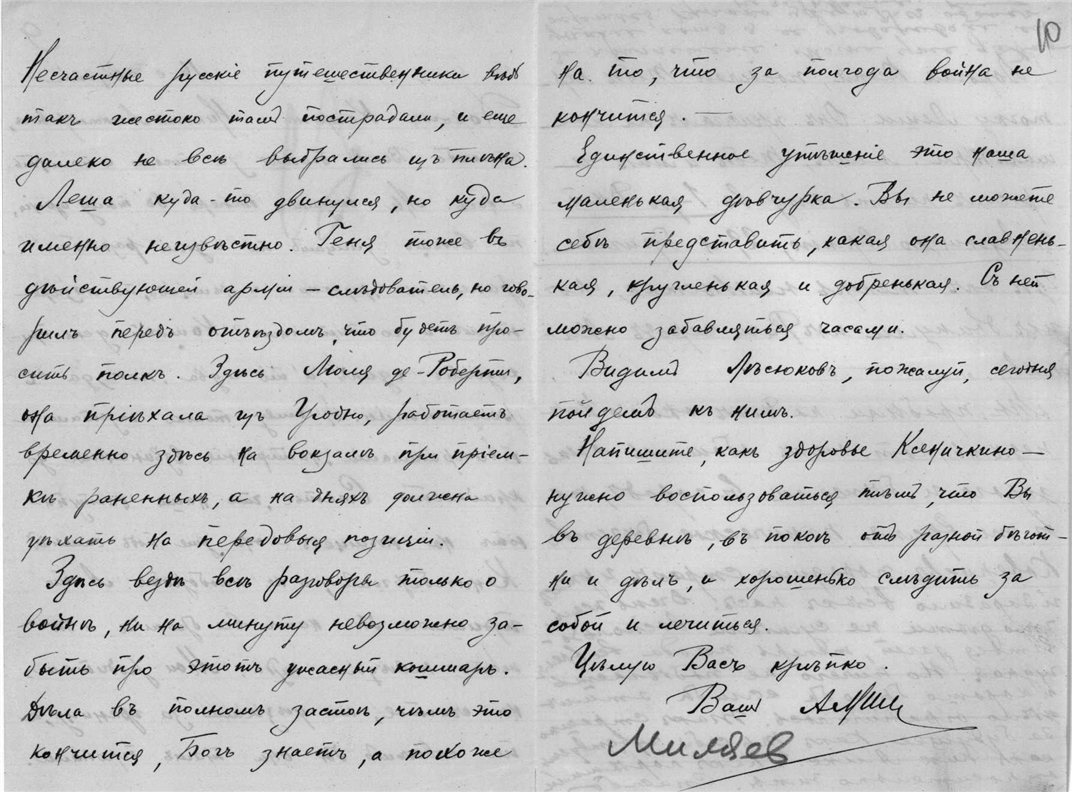 Несчастные русскіе путешественники вѣдь
такъ жестоко тамъ пострадали, и еще
далеко не всѣ выбрались изъ плѣна.
Леша куда-то двинулся, но куда
именно неизвѣстно. Геня тоже въ
дѣйствующей арміи – слѣдователь, но гово-
рилъ передъ отъѣздомъ, что будетъ про-
сить полкъ. Здѣсь Моля де-Роберти,
она пріѣхала изъ Гродно, работаетъ
временно здѣсь на вокзалѣ при пріем-
кѣ раненныхъ, а на дняхъ должна
уѣхать на передовыя позиціи.
Здѣсь вездѣ всѣ разговоры только о
войнѣ, ни на минуту невозможно за-
быть про этотъ ужасный кошмаръ.
Дѣла въ полномъ застоѣ, чѣмъ это
кончится, Богъ знаетъ, а похоже
10
на то, что за полгода война не
кончится. –
Единственное утѣшеніе это наша
маленькая дѣвчурка. Вы не можете
себѣ представить, какая она славнень-
кая, кругленькая и добренькая. Съ ней
можно забавляться часами.
Видимъ Лѣсюковъ, пожалуй, сегодня
пойдемъ къ нимъ.
Напишите, какъ здоровье Ксеничкино –
нужно воспользоваться тѣмъ, что Вы
въ деревнѣ, въ покоѣ отъ разной бѣгот-
ни и дѣлъ, и хорошенько слѣдить за
собой и лечиться.
Цѣлую Васъ крѣпко.
Вашъ
Миляев